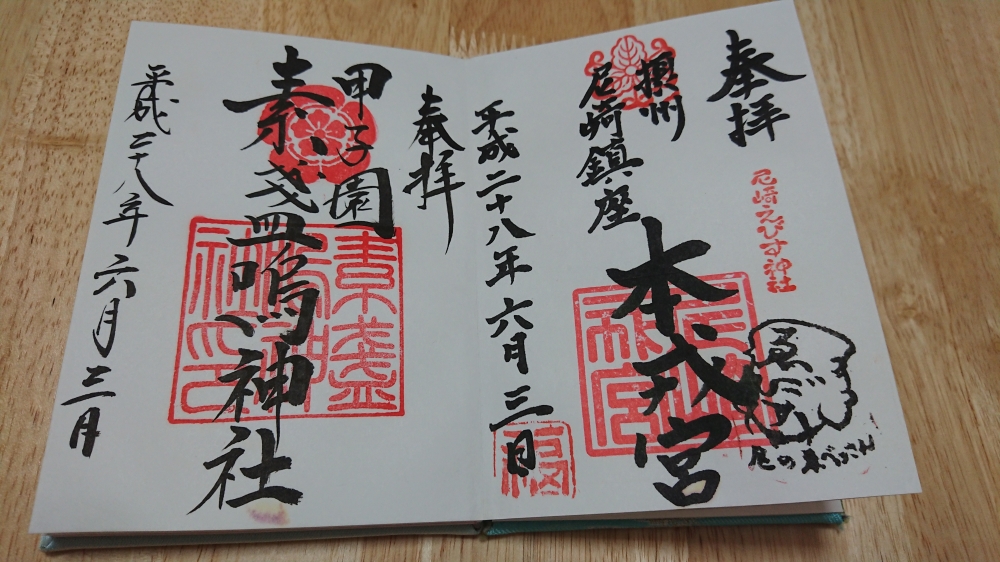 奉拝
尼崎えびす神社
摂州
尼崎鎮座
本戎宮
尼のゑべっさん
平成二十八年六月三日
奉拝
甲子園
素戔嗚神社
素盞
平成二十八年六月三日